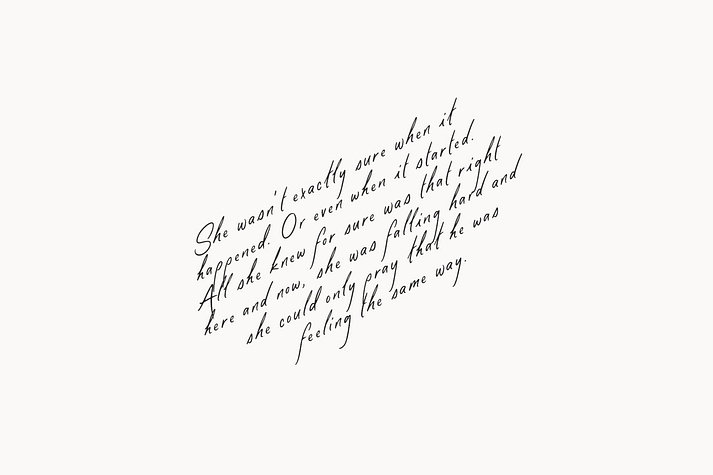 She wasn't exactly sure when it
happened. Or even when it started.
All she knew for sure was that right
here and now, she was falling hard and
she could only pray that he was
feeling the same way.